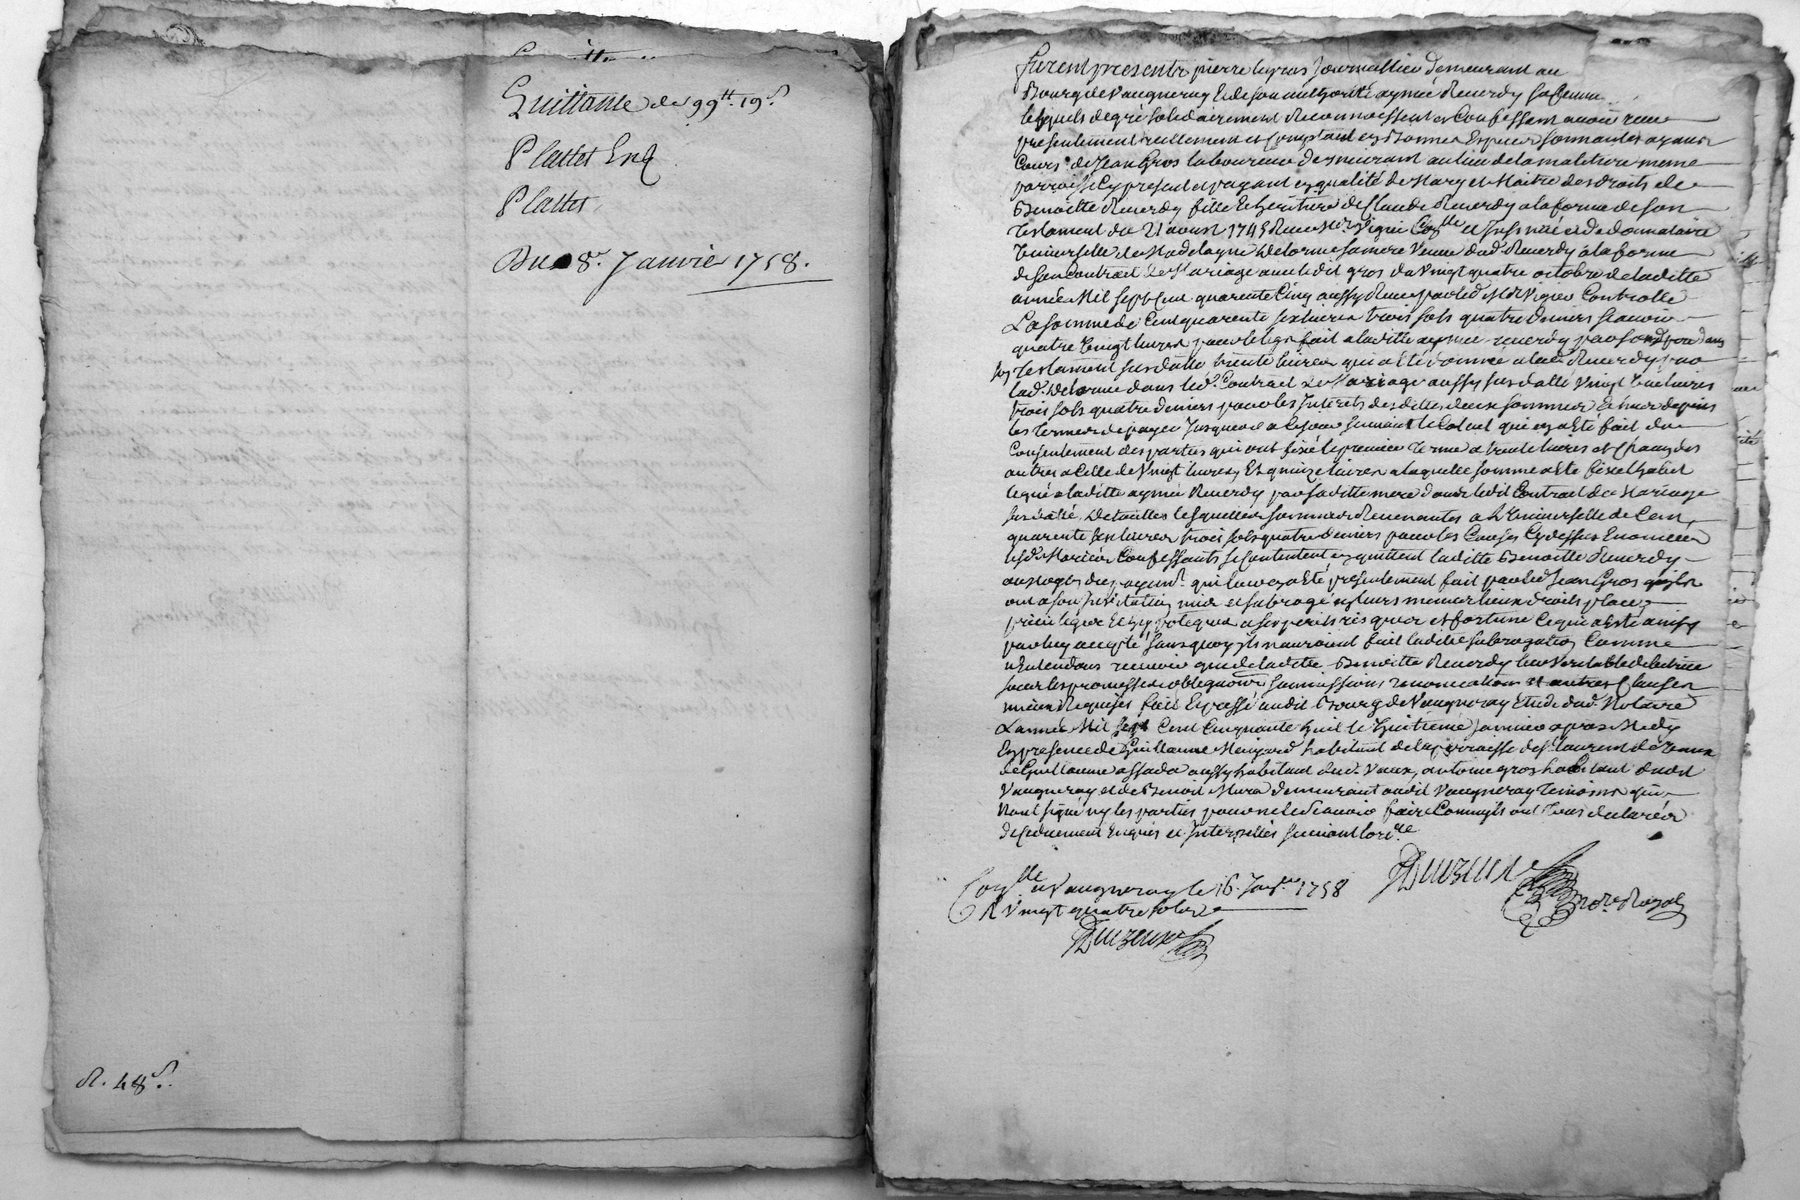 Quittance de 99ᵗᵗ. 19ˢ
Plattet Enq
Plattet
Du 8ᵉ. Janvier 1758.
R. 48ˢ.
furent presents pierre legros Journallier demeurant au
Bourg de Vaugneray & de son authorité aymée Reverdy sa femme
lesquels de gré solidairement Reconnoissent et Confessent avoir reçu
presentement reellement et comptant en Bonnes Especes sonnantes ayant
Cours de Jean Gros laboureur demeurant au lieu de la maletiere meme
parroisse Cy present et payant en qualité de Mary et Maitre des droits de
Benoitte Reverdy fille & heritiere de Claude Reverdy a la forme de son
Testament du 21 aoust 1745 Reçu Mᵉ Vigier Coⁿˡˡᵉ et Insinué et de donnataire
Universelle de Madelayne Delorme sa mere Veuve dud. Reverdy a la forme
de son Contract de Mariage avec ledit gros du Vingt quatre octobre de laditte
année Mil sept Cent quarente Cinq aussy Reçu par led. Mᵉ Vigier Controllé
La somme de Cent quarente six livres trois sols quatre deniers scavoir
quatre Vingt livres pour le legs fait a laditte aymée reverdy par son d. pere dans
son Testament susdatte trente livres qui a été donnée a lad. Reverdy par
lad. Delorme dans led. Contract de Mariage aussy susdatte Vingt livres
trois sols quatre deniers pour les Interets des dittes deux sommes Echues depuis
les Termes de payer Jusques a ce Jour suivant le Calcul qui en a Eté fait du
Consentement des parties qui ont fixé le premier Terme a trente livres et Chacun des
autres a Celle de Vingt livres, Et quinze livres a laquelle somme a Eté fixé l'habit
legué a laditte aymée Reverdy par saditte mere dans ledit Contract de Mariage
susdatté, Detaillées lesquelles sommes Revenantes a L'Universelle de Cent
quarente six livres trois sols quatre deniers pour les Causes Cy dessus Enoncées
lesd. Mariés Confessants se Contentent en quittent laditte Benoitte Reverdy
au moyen du payemᵗ. qui leur en a Eté presentement fait par led. Jean Gros qu'ils
ont a son Invitation mis et subrogé en leurs memes lieux droits place
privileges & hypoteques a ses perils risques et fortune Ce qui a Eté ainsy
par luy accepté sans quoy Ils n'auroient fait laditte subrogation Comme
n'Entendans recevoir que de laditte Benoitte Reverdy leur Veritable debitrice
sous les promesses obligations soumissions renonciations et autres Clauses
mieux Requises fait & passé audit Bourg de Vaugneray Etude dud. Notaire
L'année Mil sept Cent Cinquante huit le huitieme Janvier apres Midy
En presence de Guillaume habitant de la parroisse de Sᵗ laurent de Vaux
de Guillaume assada aussy habitant dud. Vaux, antoine gros habitant dudit
Vaugneray et de Benoit Mura demeurant audit Vaugneray temoins qui
N'ont signé ny les parties pour ne le Scavoir faire Comm'ils ont Tous declarés
de ce duement Enquis et Interpellés suivant l'ordᶜᵉ
Conˡˡᵉ a Vaugneray le 16. Janᵛ. 1758
R Vingt quatre sols
noʳᵉ Royal